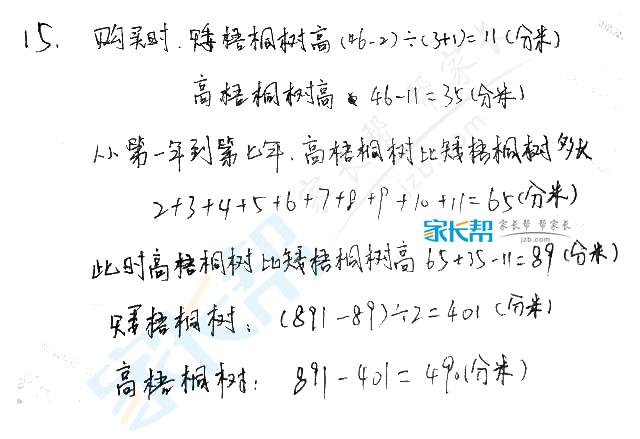 15. 购买时. 矮梧桐树高 (46-2)÷(3+1)=11(分米)
高梧桐树高 46-11=35(分米)
从第一年到第七年. 高梧桐树比矮梧桐树多长
2+3+4+5+6+7+8+9+10+11=65(分米)
家长帮 家长帮 帮家长
jzb.com
此时高梧桐树比矮梧桐树高 65+35-11=89(分米)
矮梧桐树: (891-89)÷2=401(分米)
高梧桐树: 891-401=490(分米)